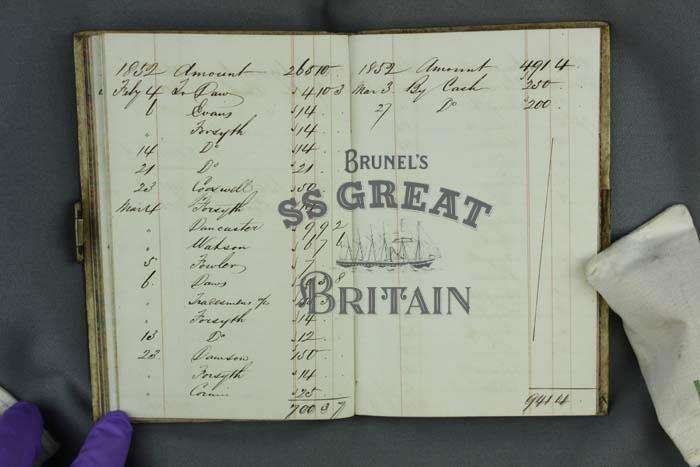 1852 Amount 265 10
Feby 4 To Daw 4 10 3
6 Evans 14
" Forsyth 14
14 Do 14
21 Do 21
23 50
Mar 4 Forsyth 14
" Dancaster 9 9 2
" Watson 6 7 6
5 Fowler 7
6 Daws 8
" Tradesmens
" Forsyth 14
13 Do 12
23 Dawson 150
" Forsyth 14
" 25
700 3 7
1852 Amount 491 4
Mar 3 By Cash 250
27 Do 200
941 4
BRUNEL'S
SS GREAT
BRITAIN